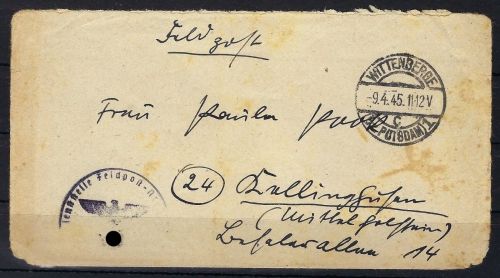 Feldpost
WITTENBERGE
-9.4.45.11-12V
C
(BZ. POTSDAM)
Frau Paula
24
Kellinghusen
(Mittelholstein)
14
Feldpost-N